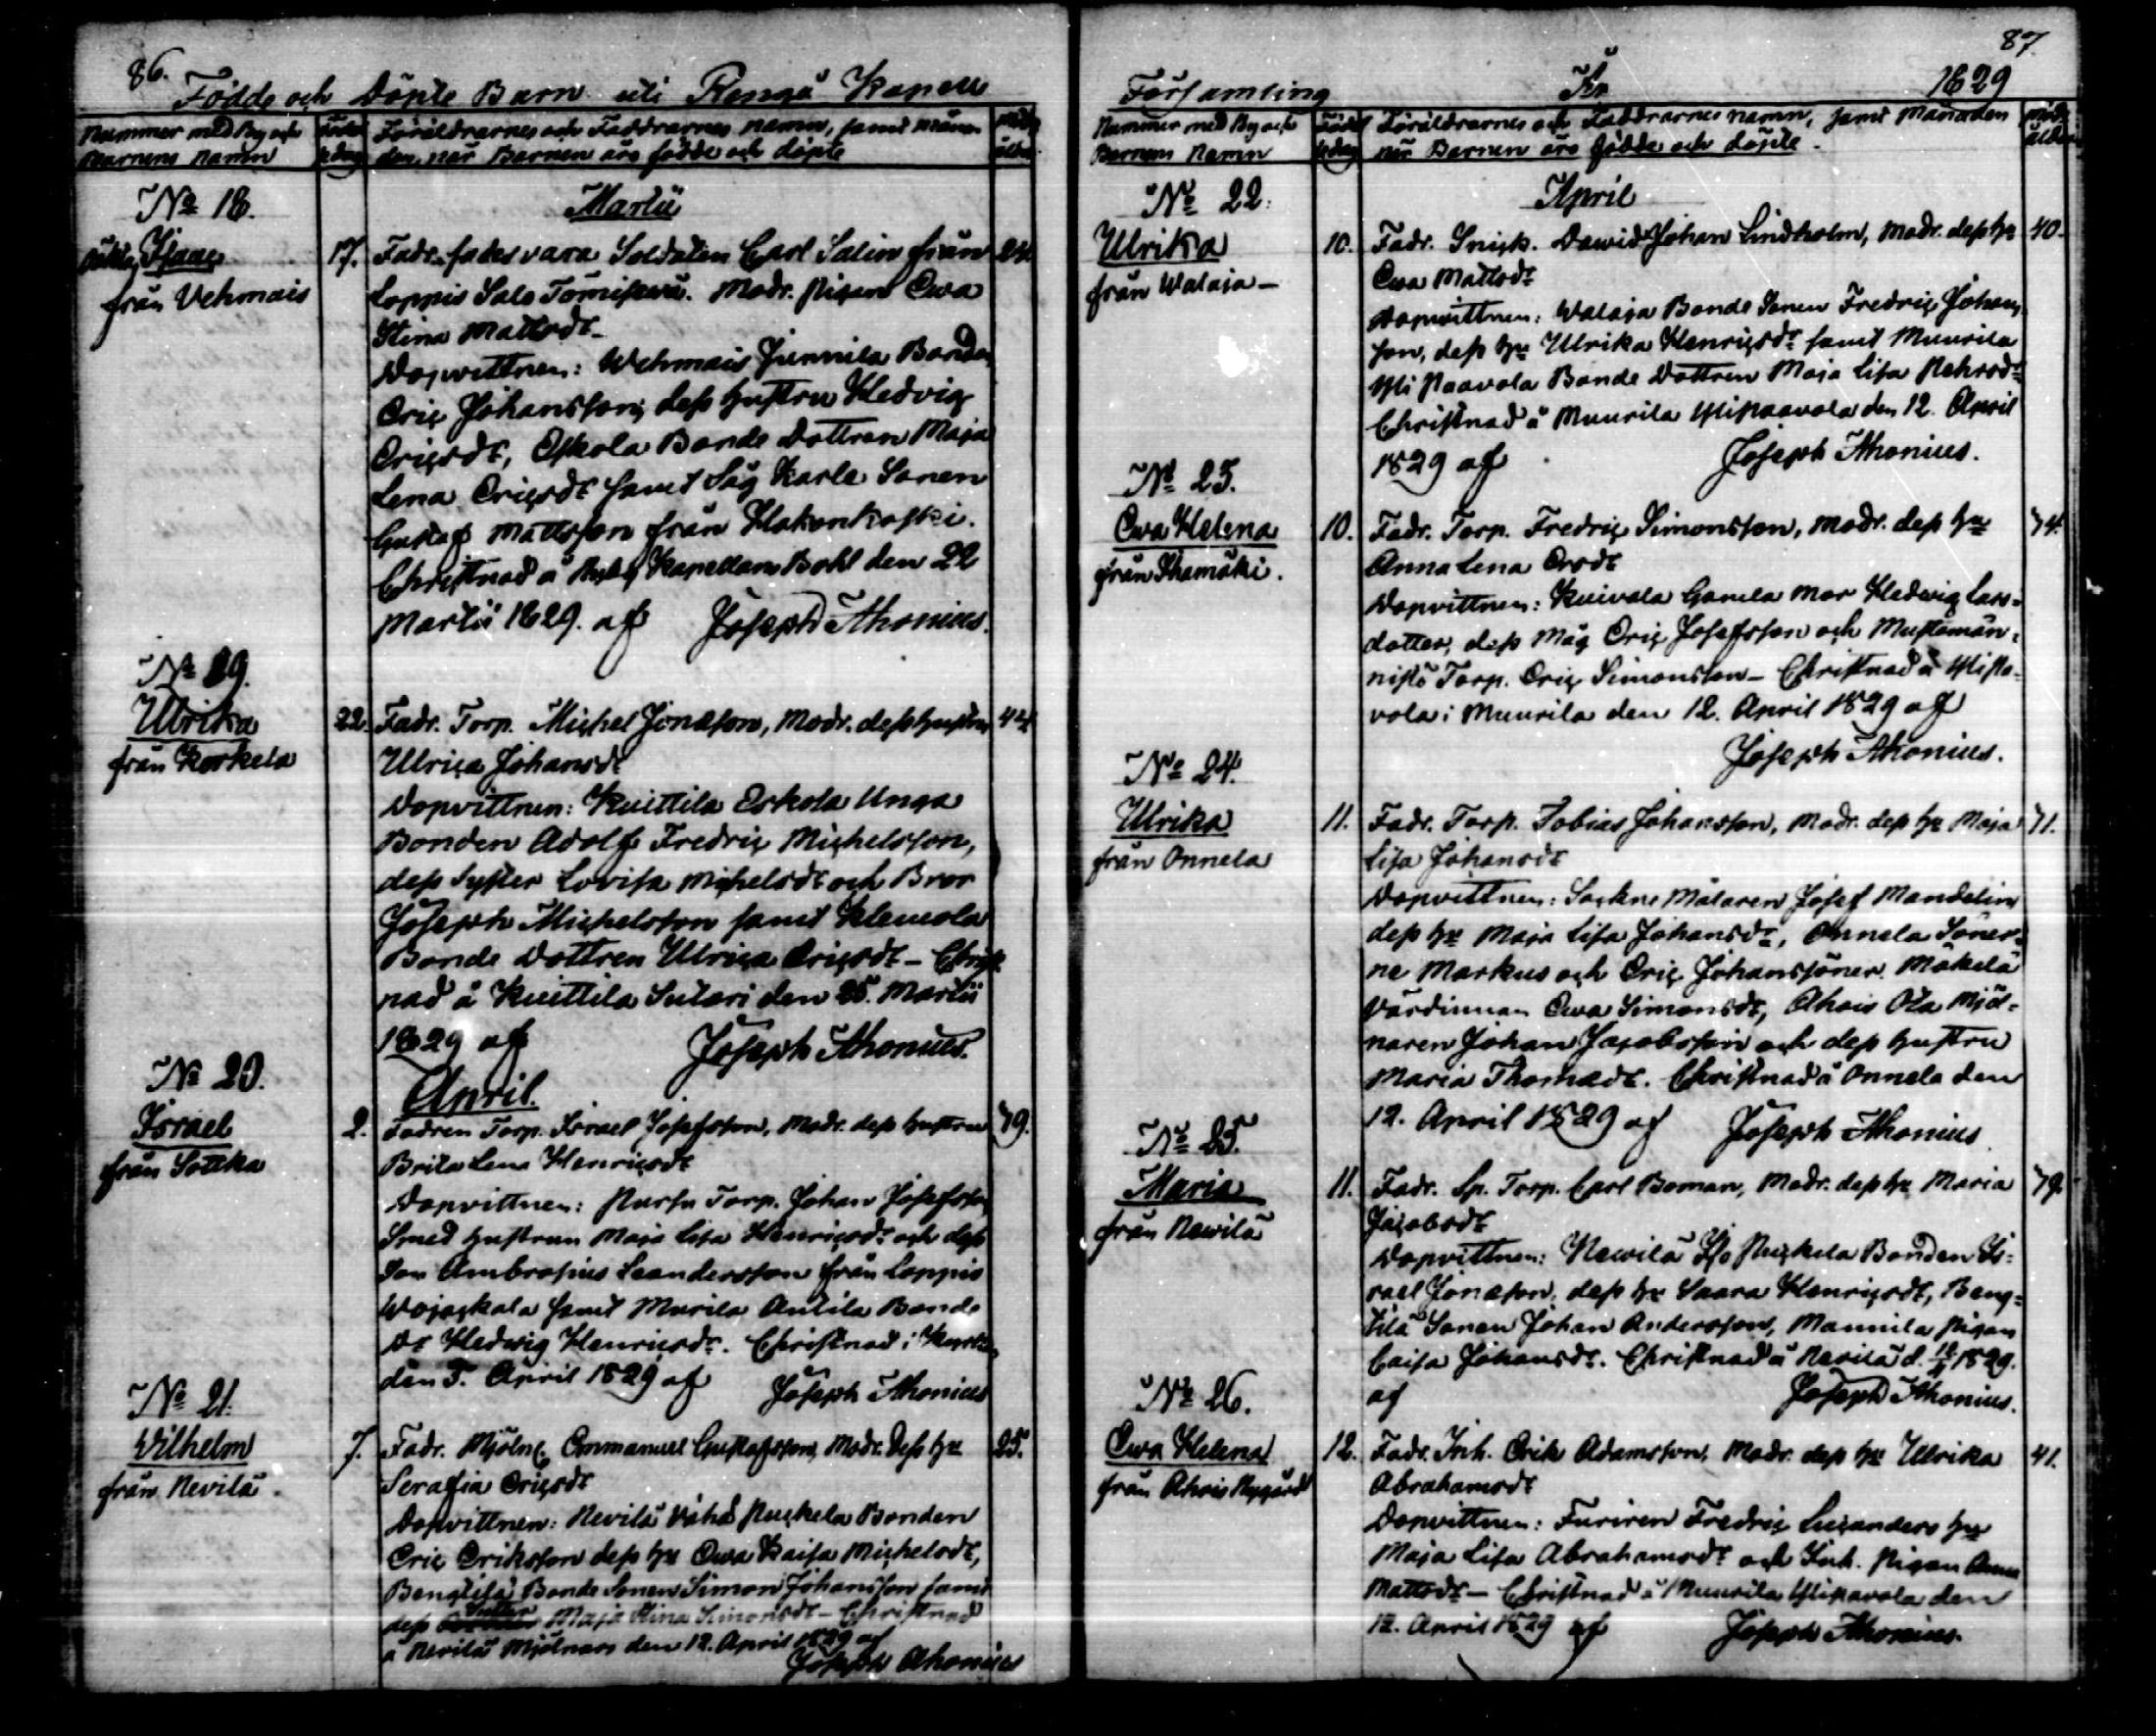 86.
Födde och Döpte Barn uti Rengå Kapell
Nummer med By och
Barnens Namn
Föräldrarnes och Faddrarnes namn, samt måna-
den, när Barnen äro födde och döpte
Martii
No 18.
oäkta Isaac
från Vehmais
17.
Fadr. säges vara Soldaten Carl Salin från
24.
Loppis Salo Modr. Pigan Ewa
Stina Mattsdr
Dopvittnen: Wehmais Junnila Bonden
Eric Johansson, dess hustru Hedvig
Ericsdr, Eskola Bonde Dottren Maja
Lena Ericsdr samt Såg Karls Sonen
Gustaf Mattsson från Hakonkoski.
Christnad å Kapellans Bohl den 22
Martii 1829. af Joseph Ahonius.
No 19.
Ulrika
från Korkela
22.
Fadr. Torp. Michel Jonasson, Modr. dess hustru
44
Ulrica Johansdr
Dopvittnen: Kuittila Eskola Unga
Bonden Adolf Fredric Michelsson,
dess Syster Lovisa Michelsdr och Bror
Joseph Michelsson samt Klemola
Bonde Dottren Ulrica Ericsdr – Christ-
nad å Kuittila Sutari den 25. Martii
1829 af Joseph Ahonius.
April.
No 20.
Israel
från Sottka
2.
Fadren Torp. Israel Josefsson, Modr. dess hustru
39.
Brita Lena Henricsdr
Dopvittnen: Torp. Johan Josefsson
Smed hustrun Maja Lisa Henricsdr och dess
Son Ambrosius Leandersson från Loppis
Wojaskala samt Murila Antila Bonde
Dr Hedwig Henricsdr. Christnad i
den 5. April 1829 af Joseph Ahonius
No 21.
Wilhelm
från Nevilä.
7.
Fadr. Mjöln. Emmanuel Gustafsson, Modr. dess hu
25.
Serafia Ericsdr
Dopvittnen: Nevilä Vähä Puckela Bonden
Eric Eriksson dess hu Ewa Kaisa Michelsdr,
Bengtilä Bonde Sonen Simon Johansson samt
dess Syster Maja Stina Simonsdr – Christnad
å Nevilä Mjölnars den 12. April 1829 af
Joseph Ahonius
87.
Församling
År
1829
Nummer med By och
Barnens Namn
Föräldrarnes och Faddrarnes namn, samt Månaden
när Barnen äro födde och döpte.
April
No 22.
Ulrika
från Wataja –
10.
Fadr. Snick. Dawid Johan Lindholm, Modr. dess hu
40.
Ewa Mattsdr
Dopvittnen: Wataja Bonde Sonen Fredric Johans
son, dess hu Ulrika Henricsdr samt Muurila
Yli Paavola Bonde Dottren Maja Lisa
Christnad å Muurila Ylipaavola den 12. April
1829 af Joseph Ahonius.
No 23.
Ewa Helena
från
10.
Fadr. Torp. Fredric Simonsson, Modr. dess hu
34.
Anna Lena Ersdr
Dopvittnen: Kuivala Gamla Mor Hedwig Lars-
dotter, dess Måg Eric Josefsson och Mustamän-
nistö Torp. Eric Simonsson – Christnad å Ylipa-
vola i Muurila den 12. April 1829 af
Joseph Ahonius.
No 24.
Ulrika
från Onnela
11.
Fadr. Torp. Tobias Johansson, Modr. dess hu Maja
31.
Lisa Johansdr
Dopvittnen: Sockne Målaren Josef Mandelin
dess hu Maja Lisa Johansdr, Onnela Söner-
ne Markus och Eric Johanssöner. Mäkelä
Värdinnan Ewa Simonsdr, Ahois Mjöl-
naren Johan Jacobsson och dess hustru
Maria Thomædr. Christnad å Onnela den
12. April 1829 af Joseph Ahonius
No 25.
Maria
från Newilä
11.
Fadr. Sp. Torp. Carl Boman, Modr. dess hu Maria
39.
Jacobsdr
Dopvittnen: Newilä Iso Puckela Bonden Is-
rael Jonasson, dess hu Saara Henricsdr, Beng-
tilä Sonen Johan Andersson, Mannila Pigan
Caisa Johansdr. Christnad å Nevilä d. 12/4 1829.
af Joseph Ahonius.
No 26.
Ewa Helena
från Ahois Nygård
12.
Fadr. Inh. Erik Adamsson, Modr. dess hu Ulrika
41.
Abrahamsdr
Dopvittnen: Furiren Fredric Lucanders hu
Maja Lisa Abrahamsdr och Inh. Pigan Anna
Mattsdr – Christnad å Muurila Ylipavola den
12. April 1829 af Joseph Ahonius.